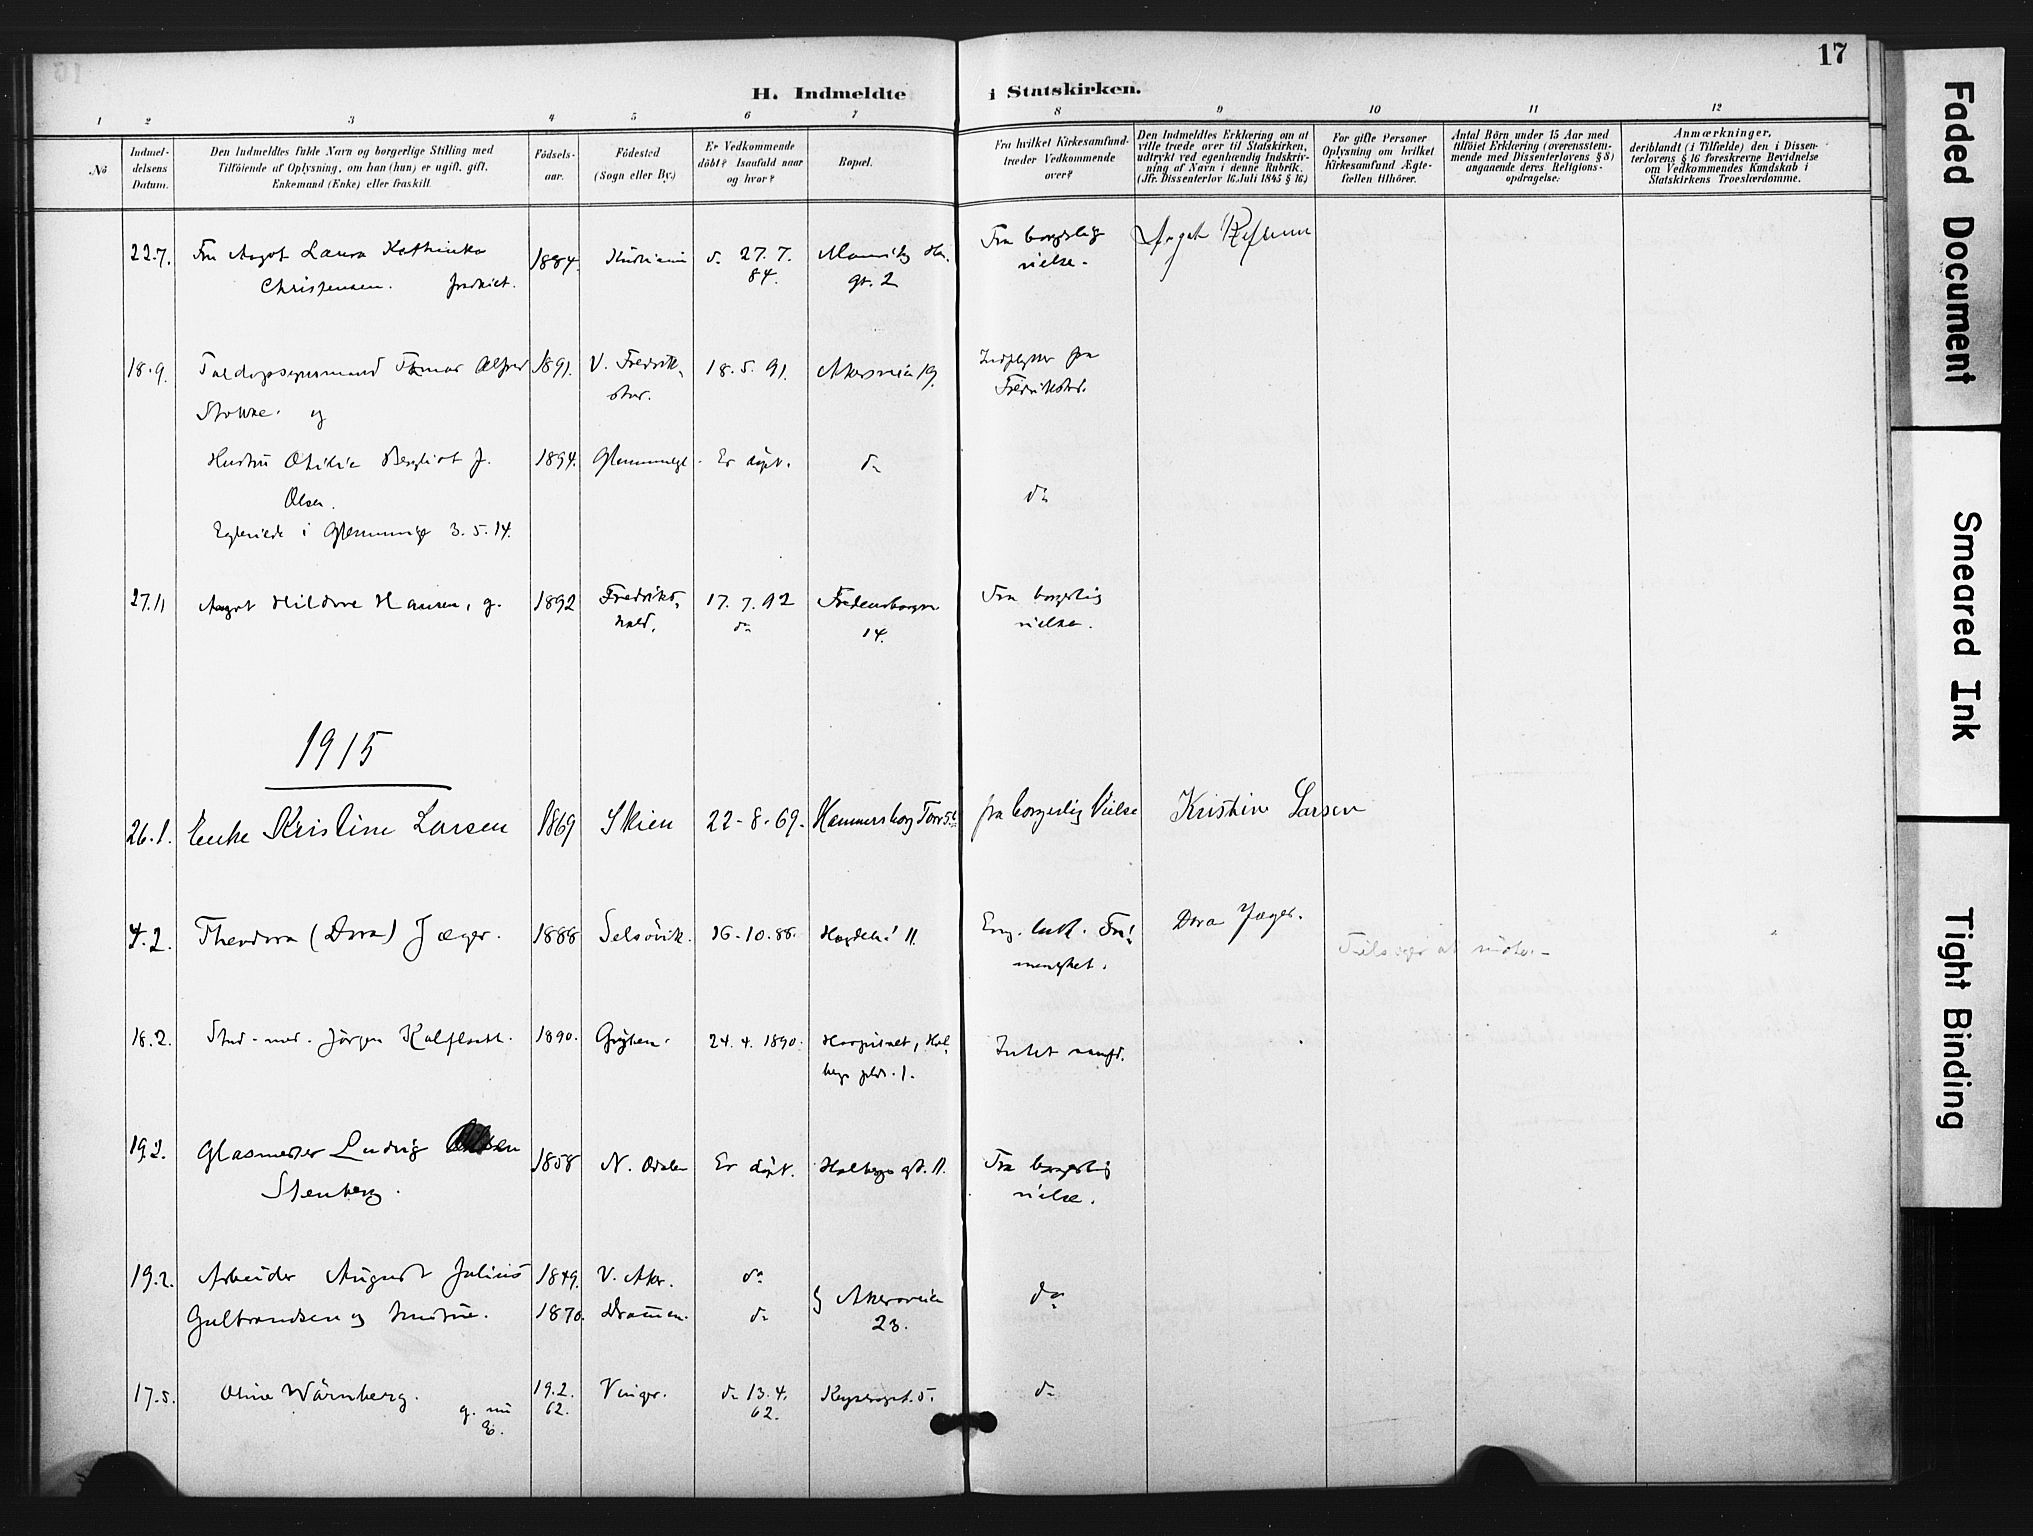 17
H. Indmeldte i Statskirken.
1 2 3 4 5 6 7 8 9 10 11 12
No
Indmel-
delsens
Datum.
Den Indmeldtes fulde Navn og borgerlige Stilling med
Tilföiende af Oplysning, om han (hun) er ugift, gift,
Enkemand (Enke) eller fraskilt.
Födsels-
aar.
Födested
(Sogn eller By.)
Er Vedkommende
döbt? Isaafald naar
og hvor?
Bopæl.
Fra hvilket Kirkesamfund
træder Vedkommende
over?
Den Indmeldtes Erklæring om at
ville træde over til Statskirken,
udtrykt ved egenhændig Indskriv-
ning af Navn i denne Rubrik.
(Jfr. Dissenterlov 16. Juli 1845 § 16)
For gifte Personer
Oplysning om hvilket
Kirkesamfund Ægte-
fællen tilhörer.
Antal Börn under 15 Aar med
tilföiet Erklæring (overensstem-
mende med Dissenterlovens § 8)
angaaende deres Religions-
opdragelse.
Anmærkninger,
deriblandt (i Tilfælde) den i Dissen-
terlovens § 16 foreskrevne Bevidnelse
om Vedkommendes Kundskab i
Statskirkens Troeslærdomme.
22.7. Fru Aagot Laura Kathinka 1884. Kristiania d. 27.7. Fra borgerlig Aagot
Christensen. fraskilt. 84. gt. 2 vielse.
18.9. Alfred 1891. V. Fredrik- 18.5.91. Akersveien 19. Indflytter fra
Stokke. og stad. Fredrikstad.
Hustru Otilie Bergliot J. 1894. Glemminge Er døpt. do
Olsen. do
Egteviede i Glemminge 3.5.14.
27.11 Aagot Hildine Hansen, g. 1892 Fredriks- 17.7.92 Fredensborgvn Fra borgerlig
hald. do 14. vielse.
1915
26.1. Enke Kristine Larsen 1869 Skien 22-8-69. Hammersborg Torv 5 fra borgerlig Vielse Kristine Larsen
4.2. Theodora (Dora) Jæger. 1888 Selsövik. 16-10.88. 11. Evg. luth. Fri- Dora Jæger.
menighet.
18.2. Stud. med. Jörgen Kalfloth. 1890. 24.4.1890. Hospitset, Hol-
bergs plds. 1. Intet samfd.
19.2. Glasmester Ludvig 1858 N. Odalen Er døpt. Holbergs gt. 11. Fra borgerlig
Stenberg. vielse.
19.2. Arbeider August Julius 1849. V. Aker. do
Gulbrandsen og hustru. 1870. Drammen. do Akersveien do
23.
17.5. Oline Wärnberg. 19.2. Vinger. do 13.4. Keysersgt. 5. do
g. 62. 62.
Faded Document
Smeared Ink
Tight Binding